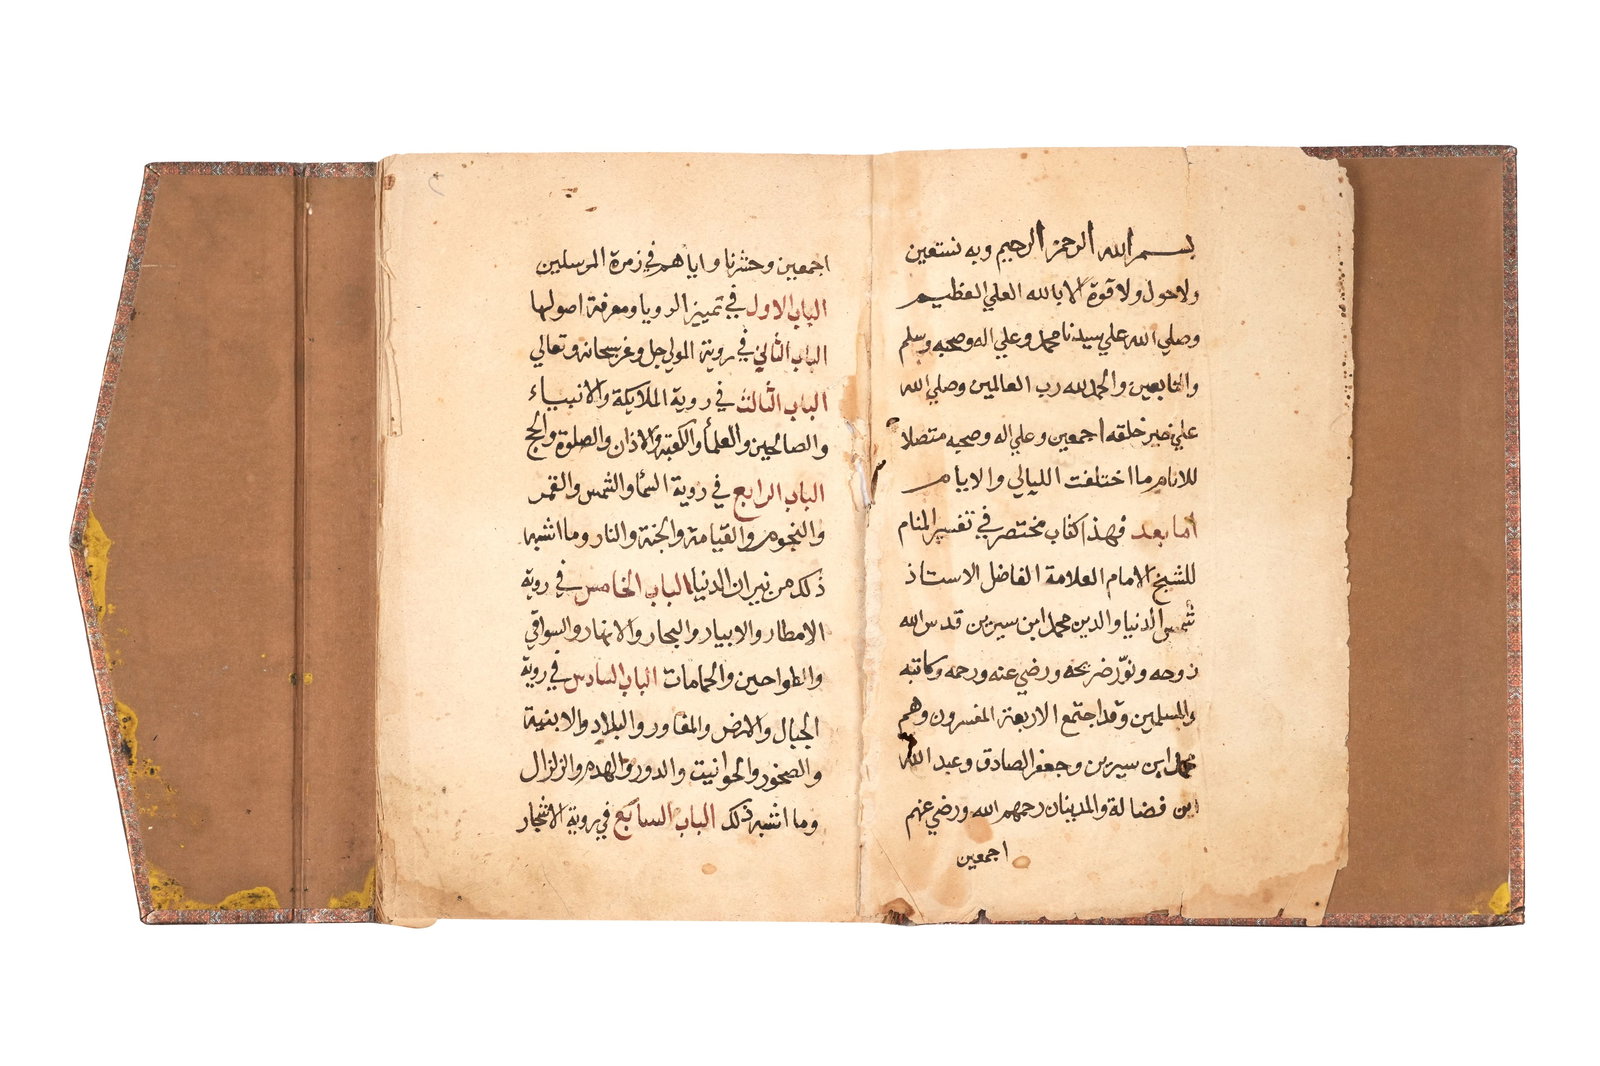 بسم الله الرحمن الرحيم وبه نستعين
ولا حول ولا قوة الا بالله العلي العظيم
وصلي الله علي سيدنا محمد وعلي اله وصحبه وسلم
والتابعين والحمد لله رب العالمين وصلي الله
علي خير خلقه اجمعين وعلي اله وصحبه متصلا
للانام ما اختلفت الليالي والايام
اما بعد فهذا كتاب مختصر في تفسير المنام
للشيخ الامام العلامة الفاضل الاستاذ
شمس الدنيا والدين محمد ابن سيرين قدس الله
روحه ونوّر ضريحه ورضي عنه ورحمه وكاتبه
والمسلمين وقد اجتمع الاربعة المفسرون وهم
محمد ابن سيرين وجعفر الصادق وعبد الله
ابن فضالة والمدينان رحمهم الله ورضي عنهم
اجمعين
اجمعين وحشرنا واياهم في زمرة المرسلين
الباب الاول في تمييز الرويا ومعرفة اصولها
الباب الثاني في روية المولي جل وعز سبحانه وتعالي
الباب الثالث في روية الملايكة والانبياء
والصالحين والعلمأ والكعبة والاذان والصلوة والحج
الباب الرابع في روية السمأ والشمس والقمر
والنجوم والقيامة والجنة والنار وما اشبه
ذلك من نيران الدنيا الباب الخامس في روية
الامطار والابيار والبحار والانهار والسواقي
والطواحين والحمامات الباب السادس في روية
الجبال والارض والمفاوز والبلاد والابنية
والصخور والحوانيت والدور والهدم والزلزال
وما اشبه ذلك الباب السابع في روية الاشجار